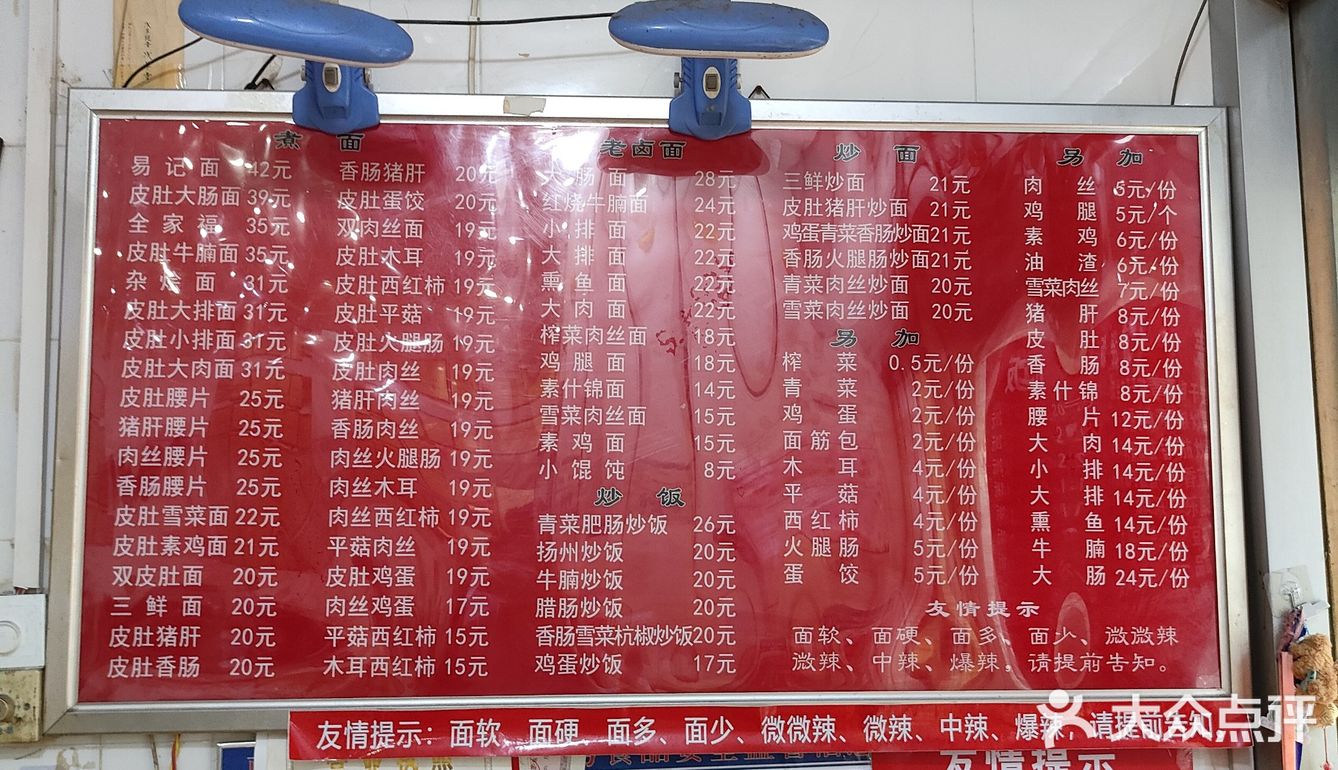 煮 面
易记面 42元
皮肚大肠面 39元
全家福 35元
皮肚牛腩面 35元
杂烩面 31元
皮肚大排面 31元
皮肚小排面 31元
皮肚大肉面 31元
皮肚腰片 25元
猪肝腰片 25元
肉丝腰片 25元
香肠腰片 25元
皮肚雪菜面 22元
皮肚素鸡面 21元
双皮肚面 20元
三鲜面 20元
皮肚猪肝 20元
皮肚香肠 20元
香肠猪肝 20元
皮肚蛋饺 20元
双肉丝面 19元
皮肚木耳 19元
皮肚西红柿 19元
皮肚平菇 19元
皮肚火腿肠 19元
皮肚肉丝 19元
猪肝肉丝 19元
香肠肉丝 19元
肉丝火腿肠 19元
肉丝木耳 19元
肉丝西红柿 19元
平菇肉丝 19元
皮肚鸡蛋 19元
肉丝鸡蛋 17元
平菇西红柿 15元
木耳西红柿 15元
老卤面
大肠面 28元
红烧牛腩面 24元
小排面 22元
大排面 22元
熏鱼面 22元
大肉面 22元
榨菜肉丝面 18元
鸡腿面 18元
素什锦面 14元
雪菜肉丝面 15元
素鸡面 15元
小馄饨 8元
炒 饭
青菜肥肠炒饭 26元
扬州炒饭 20元
牛腩炒饭 20元
腊肠炒饭 20元
香肠雪菜杭椒炒饭 20元
鸡蛋炒饭 17元
炒 面
三鲜炒面 21元
皮肚猪肝炒面 21元
鸡蛋青菜香肠炒面 21元
香肠火腿肠炒面 21元
青菜肉丝炒面 20元
雪菜肉丝炒面 20元
另 加
榨菜 0.5元/份
青菜 2元/份
鸡蛋 2元/份
面筋包 2元/份
木耳 4元/份
平菇 4元/份
西红柿 4元/份
火腿肠 5元/份
蛋饺 5元/份
另 加
肉丝 5元/份
鸡腿 5元/个
素鸡 6元/份
油渣 6元/份
雪菜肉丝 7元/份
猪肝 8元/份
皮肚 8元/份
香肠 8元/份
素什锦 8元/份
腰片 12元/份
大肉 14元/份
小排 14元/份
大排 14元/份
熏鱼 14元/份
牛腩 18元/份
大肠 24元/份
友情提示
面软、面硬、面多、面少、微微辣
微辣、中辣、爆辣，请提前告知。
友情提示：面软、面硬、面多、面少、微微辣、微辣、中辣、爆辣、请提前告知
友情提示
大众点评